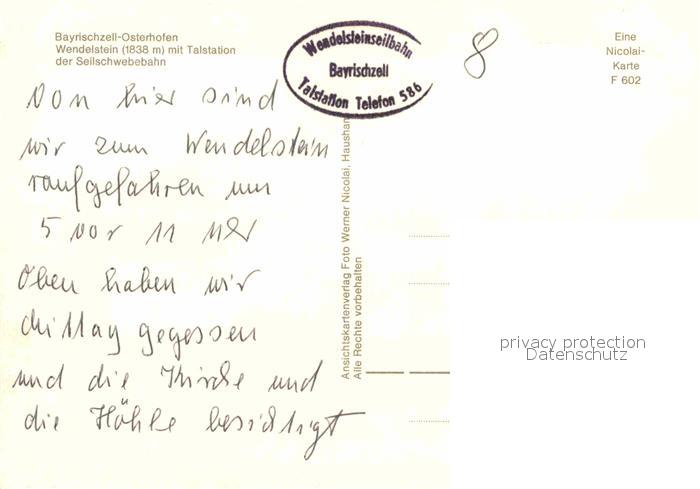 Bayrischzell-Osterhofen
Wendelstein (1838 m) mit Talstation
der Seilschwebebahn
Wendelsteinseilbahn
Bayrischzell
Talstation Telefon 586
8
Eine
Nicolai-
Karte
F 602
Von hier sind
wir zum Wendelstein
raufgefahren um
5 vor 11 Uhr
Oben haben wir
Mittag gegessen
und die Kirche und
die Höhle besichtigt
Ansichtskartenverlag Foto Werner Nicolai, Hausham
Alle Rechte vorbehalten
privacy protection
Datenschutz